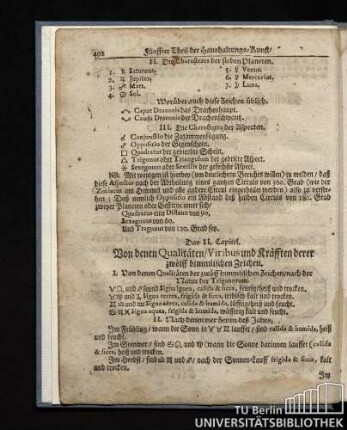 402 Fünffter Theil der Haushaltungs-Kunst/
II. Die Characteres der sieben Planeten.
1. ♄ Saturnus, 5. ♀ Venus.
2. ♃ Jupiter, 6. ☿ Mercurius.
3. ♂ Mars. 7. ☽ Luna.
4. ☉ Sol.
Worüber auch diese Zeichen üblich.
☊ Caput Draconis das Drachenhaupt.
☋ Cauda Draconis der Drachenschwantz.
III. Die Characteres der Aspecten.
☌ Conjunctio die Zusammenfügung.
☍ Oppositio der Gegenschein.
□ Quadratus der gevierdte Schein.
△ Trigonus oder Triangulus der gedritte Aspect.
⚹ Sexagonus oder Sextilis der gesechste Aspect.
NB. Mit wenigen ist hierbey (um deutlichern Berichts willen) zu melden / daß
diese Aspecten nach der Abtheilung eines gantzen Circuls von 360. Grad (wie der
Zodiacus am Himmel und alle andere Circul eingetheilet werden) also zu verstehen
: Daß nemlich Oppositio ein Abstand des halben Circuls von 180. Grad
zweyer Planeten oder Gestirne unter sich/
Quadratus eine Distanz von 90.
Sexagonus von 60.
Und Trigonus von 120. Grad sey.
Das II. Capitel.
Von denen Qualitäten/Viribus und Kräfften derer
zwölff himmlischen Zeichen.
I. Von denen Qualitäten der zwölff himmlischen Zeichen/nach der
Natur der Trigonorum.
♈ ♌ und ♐ seynd Signa ignea, calida & sicca, feurig/heiß und trocken.
♉ ♍ und ♑ Signa terrea, frigida & sicca, irrdisch kalt und trocken.
♊ ♎ und ♒ Signa aërea, calida & humida, lüfftig/heiß und feucht.
♋ ♏ ♓ Signa aquea, frigida & humida, wässerig kalt und feucht.
II. Nach denen vier Zeiten des Jahrs.
Im Frühling / wann die Sonn in ♈ ♉ ♊ lauffet / sind calida & humida, heiß
und feucht.
Im Sommer / sind ♋ ♌ und ♍ wann die Sonne darinnen lauffet (calida
& sicca, heiß und trocken.
Im Herbst / sind ♎ ♏ und ♐ / nach der Sonnen-Lauff frigida & sicca, kalt
und trocken.
Im
TU Berlin
UNIVERSITÄTSBIBLIOTHEK